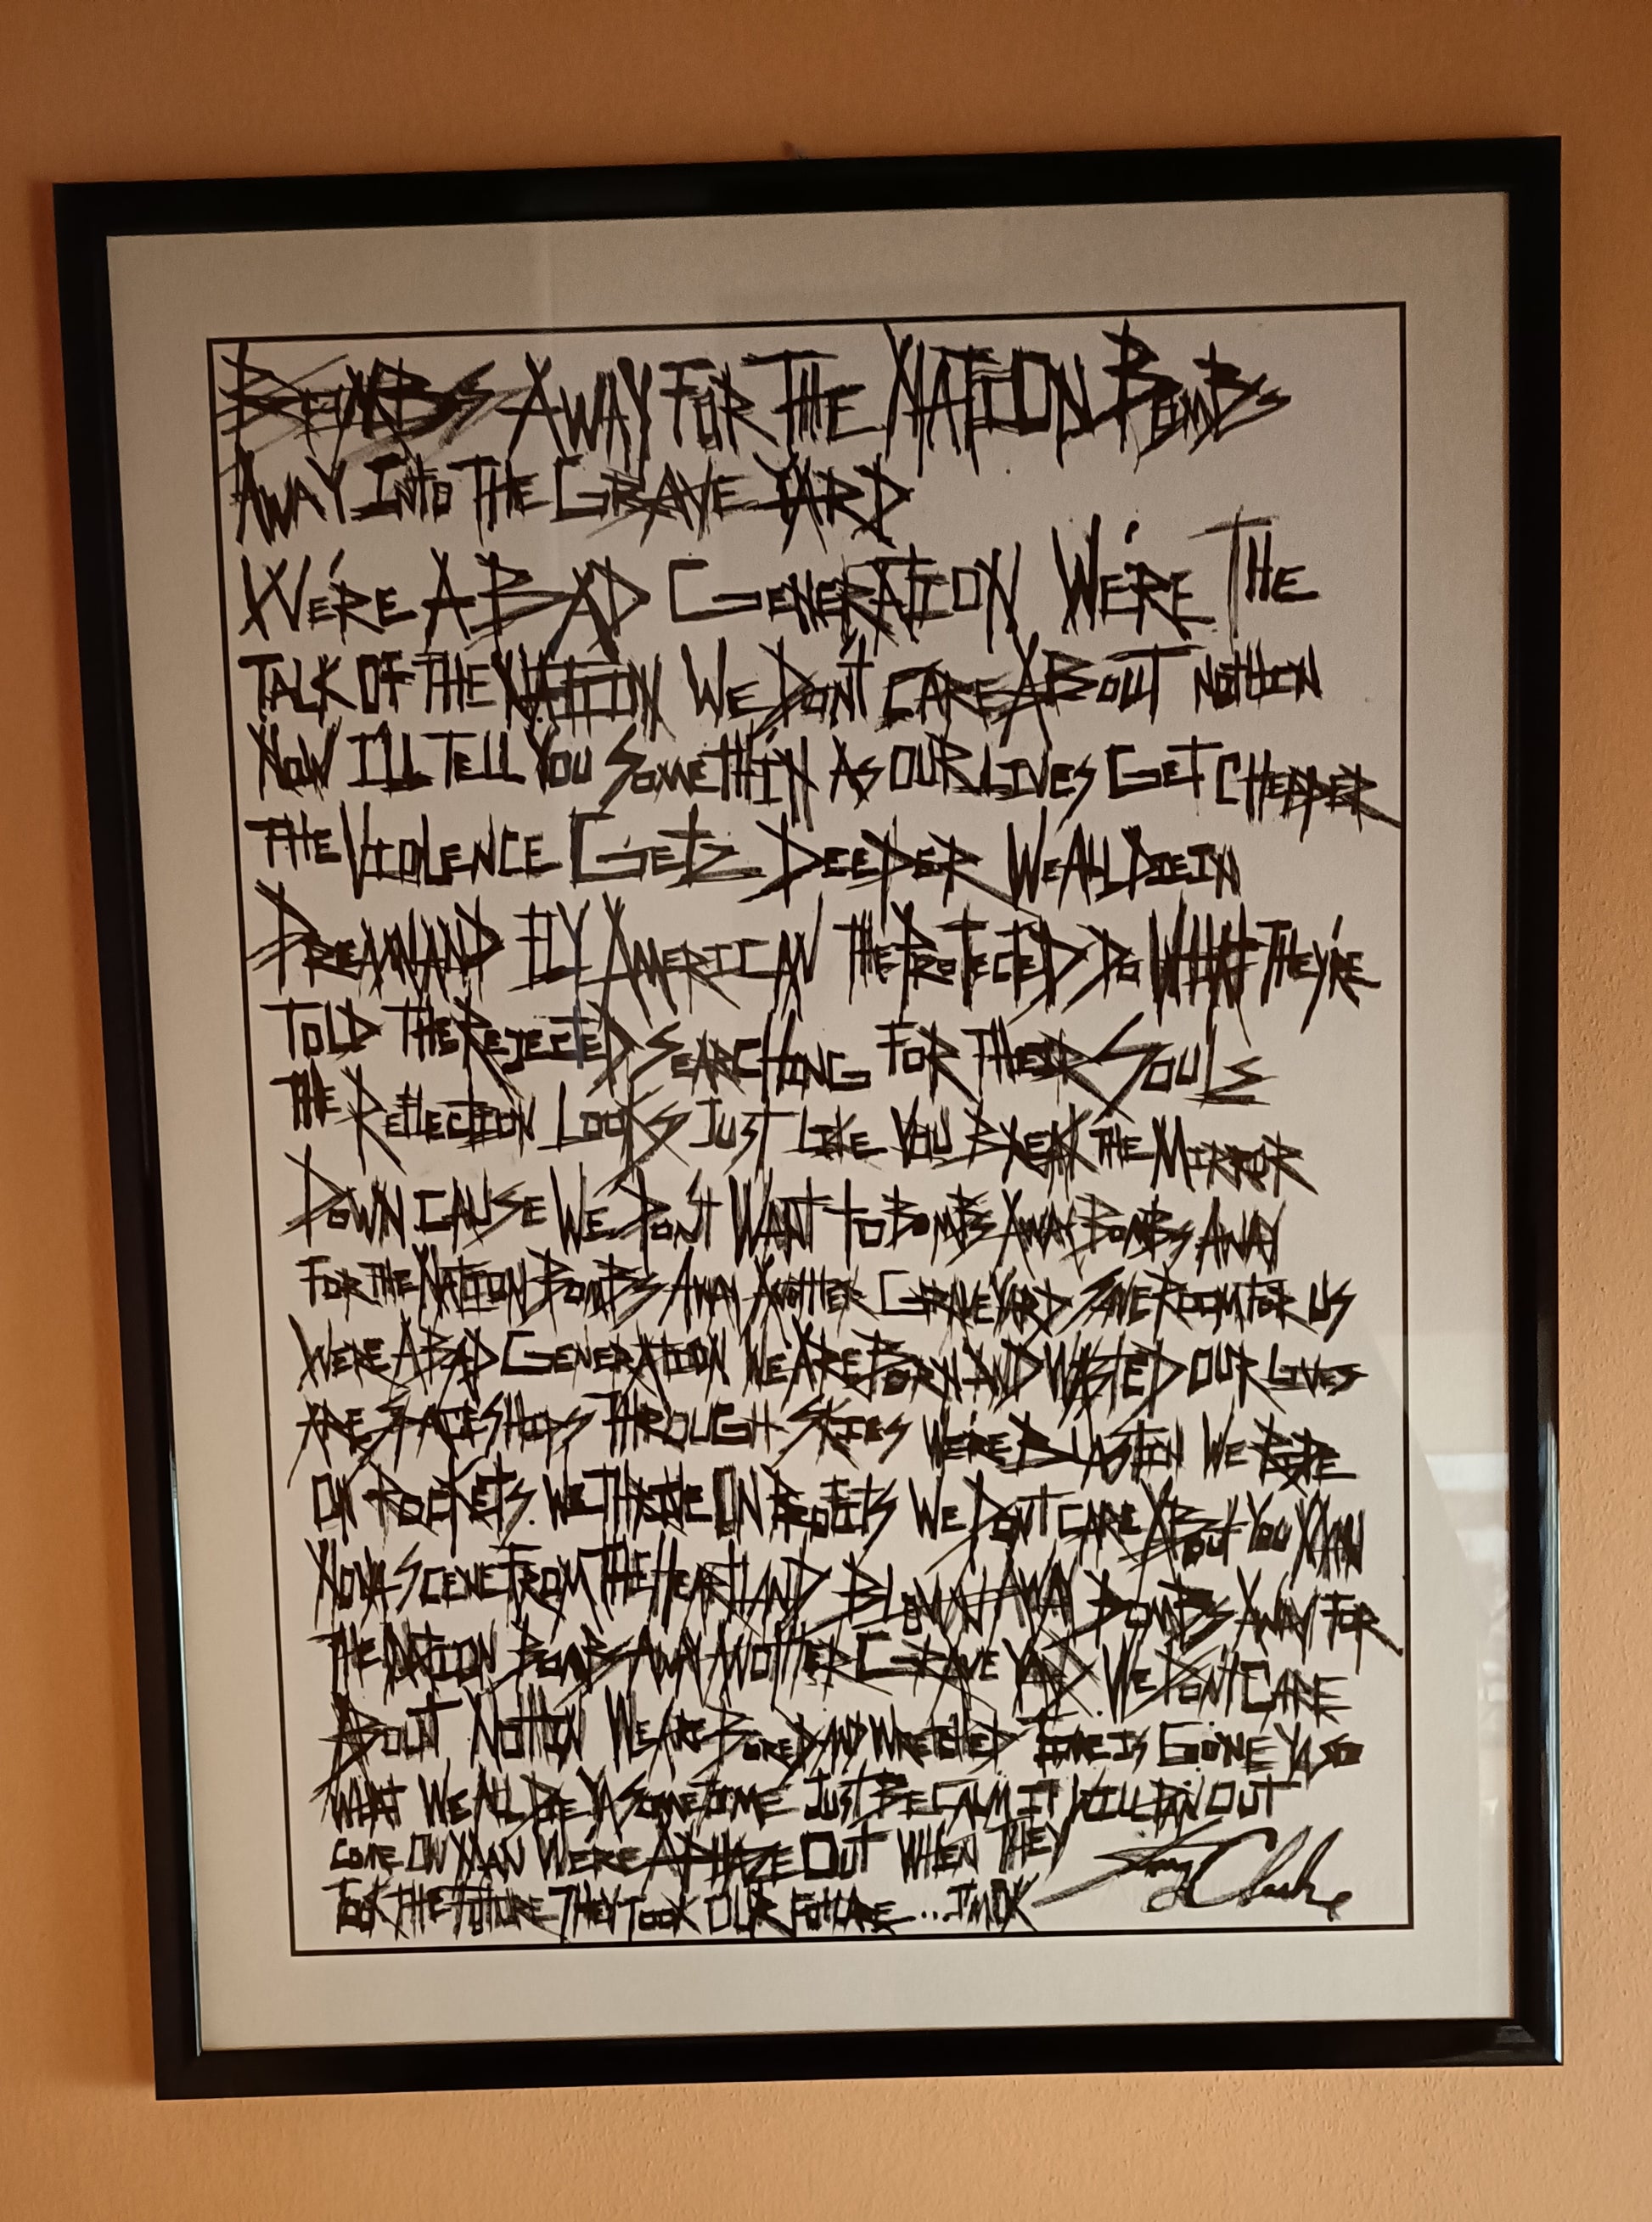 BOMBS AWAY FOR THE NATION BOMBS
AWAY INTO THE GRAVE YARD
WE'RE A BAD GENERATION WE'RE THE
TALK OF THE NATION WE DON'T CARE ABOUT NOTHIN
NOW I'LL TELL YOU SOMETHIN AS OUR LIVES GET CHEPPER
THE VIOLENCE GETZ DEEPER WE ALL DIE IN
DREAM AND FLY AMERICAN THE PROTECTED DO WHAT THEY'RE
TOLD THE REJECTED SEARCHING FOR THEIR SOULS
THE REFLECTION LOOKS JUST LIKE YOU BREAK THE MIRROR
DOWN CAUSE WE DON'T WANT TO BOMBS AWAY BOMBS AWAY
FOR THE NATION BOMBS AWAY ANOTHER GRAVEYARD SAVE ROOM FOR US
WERE A BAD GENERATION WE ARE BORN AND WASTED OUR LIVES
ARE SPACESHIPS THROUGH SKIES WE'RE BLASTIN WE RIDE
ON ROCKETS. WE THRIVE ON PROFITS WE DON'T CARE ABOUT YOU MAN
NOVA SCENE FROM THE HEARTLAND BLOWN AWAY BOMBS AWAY FOR
THE NATION BOMBS AWAY ANOTHER GRAVE YARD. WE DON'T CARE
ABOUT NOTHIN WE ARE BORED AND WRETCHED TIME IS GONE YA SO
WHAT WE ALL DIE YA SOMETIME JUST BE CALM IT WILL PAN OUT
COME ON MAN WE'RE A PHAZE OUT WHEN THEY
TOOK THE FUTURE THEY TOOK OUR FUTURE... I'M OK
Clarke